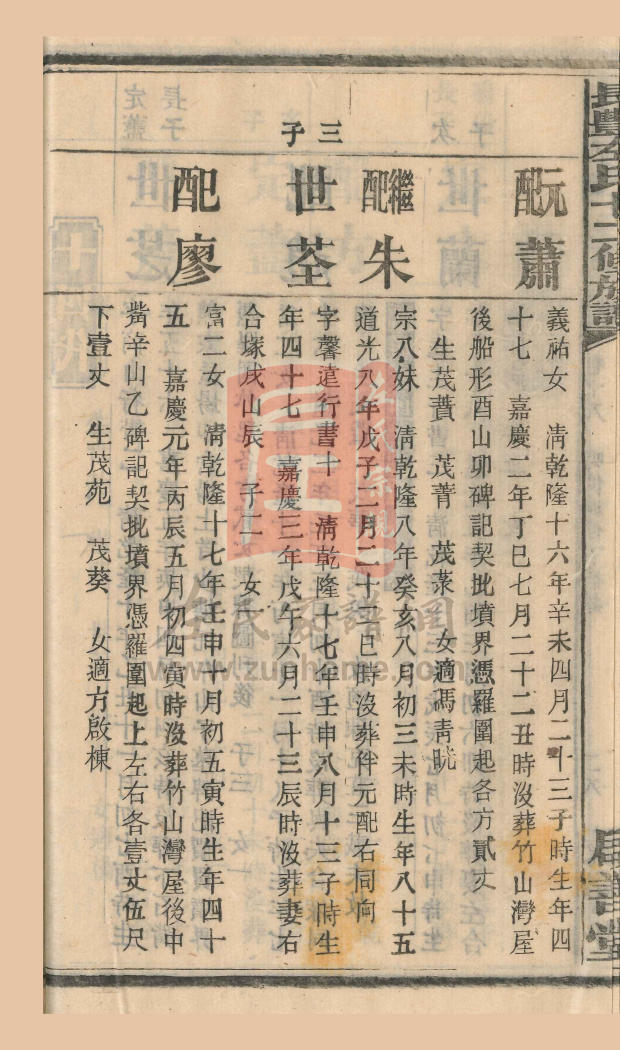 長豐李氏十二修族譜
居善堂
元配蕭
義祐女 清乾隆十六年辛未四月二十三子時生年四
十七 嘉慶二年丁巳七月二十二丑時沒葬竹山灣屋
後船形酉山卯碑記契批墳界憑羅圍起各方貳丈
生茂蕡 茂菁 茂菉 女適馮青
繼配朱
宗八妹 清乾隆八年癸亥八月初三未時生年八十五
道光八年戊子二月二十三巳時沒葬伴元配右同向
三子
世荃
字馨遠行書十 清乾隆十七年壬申八月十三子時生
年四十七 嘉慶三年戊午六月二十三辰時沒葬妻右
合塚戌山辰 子二 女一
配廖
富二女 清乾隆十七年壬申十月初五寅時生年四十
五 嘉慶元年丙辰五月初四寅時沒葬竹山灣屋後中
觜辛山乙碑記契批墳界憑羅圍起上左右各壹丈伍尺
下壹丈 生茂苑 茂葵 女適方啟棟
家譜網
www.zuphome.com